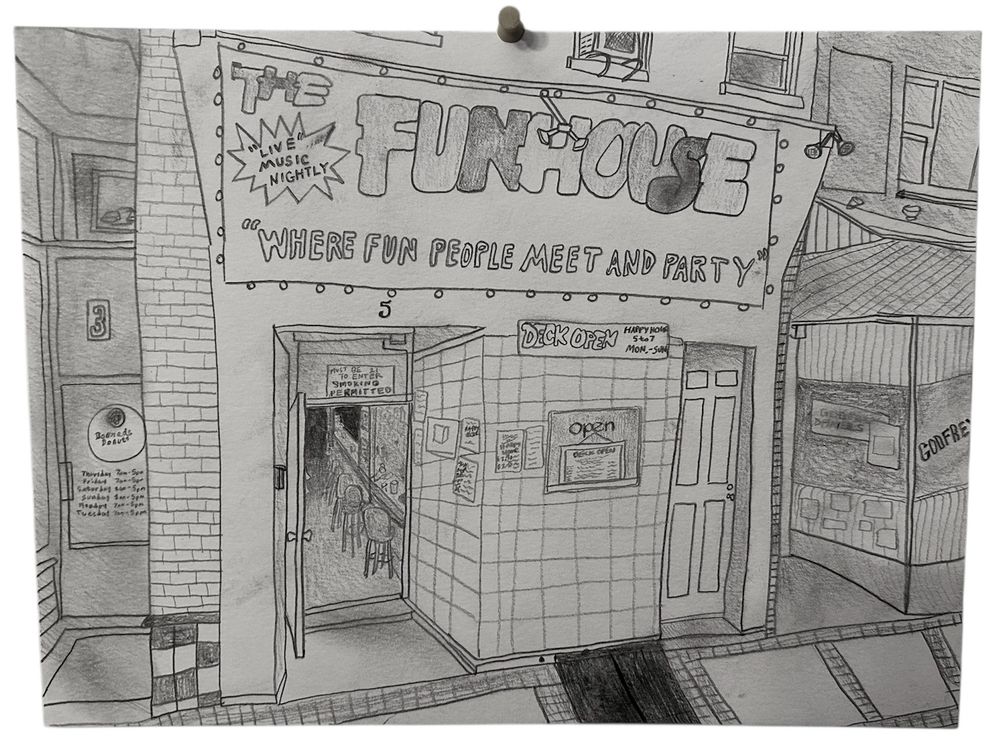 THE
FUNHOUSE
"LIVE"
MUSIC
NIGHTLY
"WHERE FUN PEOPLE MEET AND PARTY"
5
3
DECK OPEN
HAPPY HOUR
5 to 7
MON.-SUN
MUST BE 21
TO ENTER
SMOKING
PERMITTED
open
DECK OPEN
Donuts
Thursday 7am-5pm
Friday 7am-5pm
Saturday 6am-5pm
Sunday 6am-5pm
Monday 7am-5pm
Tuesday 7am-5pm
GODFREY